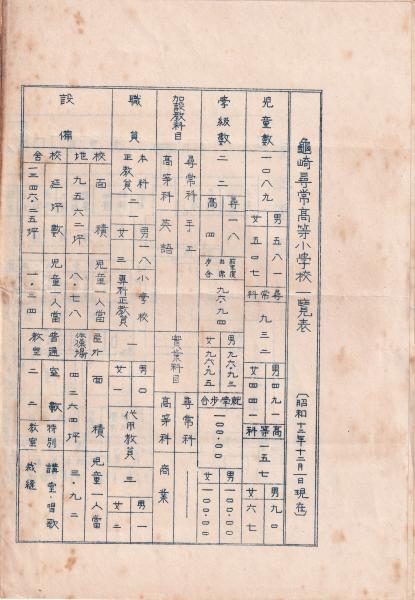 龜崎尋常高等小學校一覽表
〔昭和十三年十二月一日現在〕
兒童數
一〇八九
男 五八一
女 五〇七
尋常科
九三二
男 四九一
女 四四一
高等科
一五七
男 九〇
女 六七
學級數
二二
尋 一八
高 四
出席步合
九六.九四
男 九六.九三
女 九六.九五
就学步合
一〇〇.〇〇
男 一〇〇.〇〇
女 一〇〇.〇〇
加設教科目
尋常科 手工
高等科 英語
實業科目
尋常科 ——
高等科 商業
職員
本科正教員 二一
男 一八
女 三
小學校專科正教員 一
男 〇
女 一
代用教員 三
男 一
女 二
設備
校地
面積
九五六二坪
兒童一人當
八.七八
屋外
面積
四二六四坪
兒童一人當
三.九二
校舍
延坪數
一三四六.二五坪
兒童一人當
一.二四
普通教室
室數
二二
特別教室
講堂・唱歌
裁縫